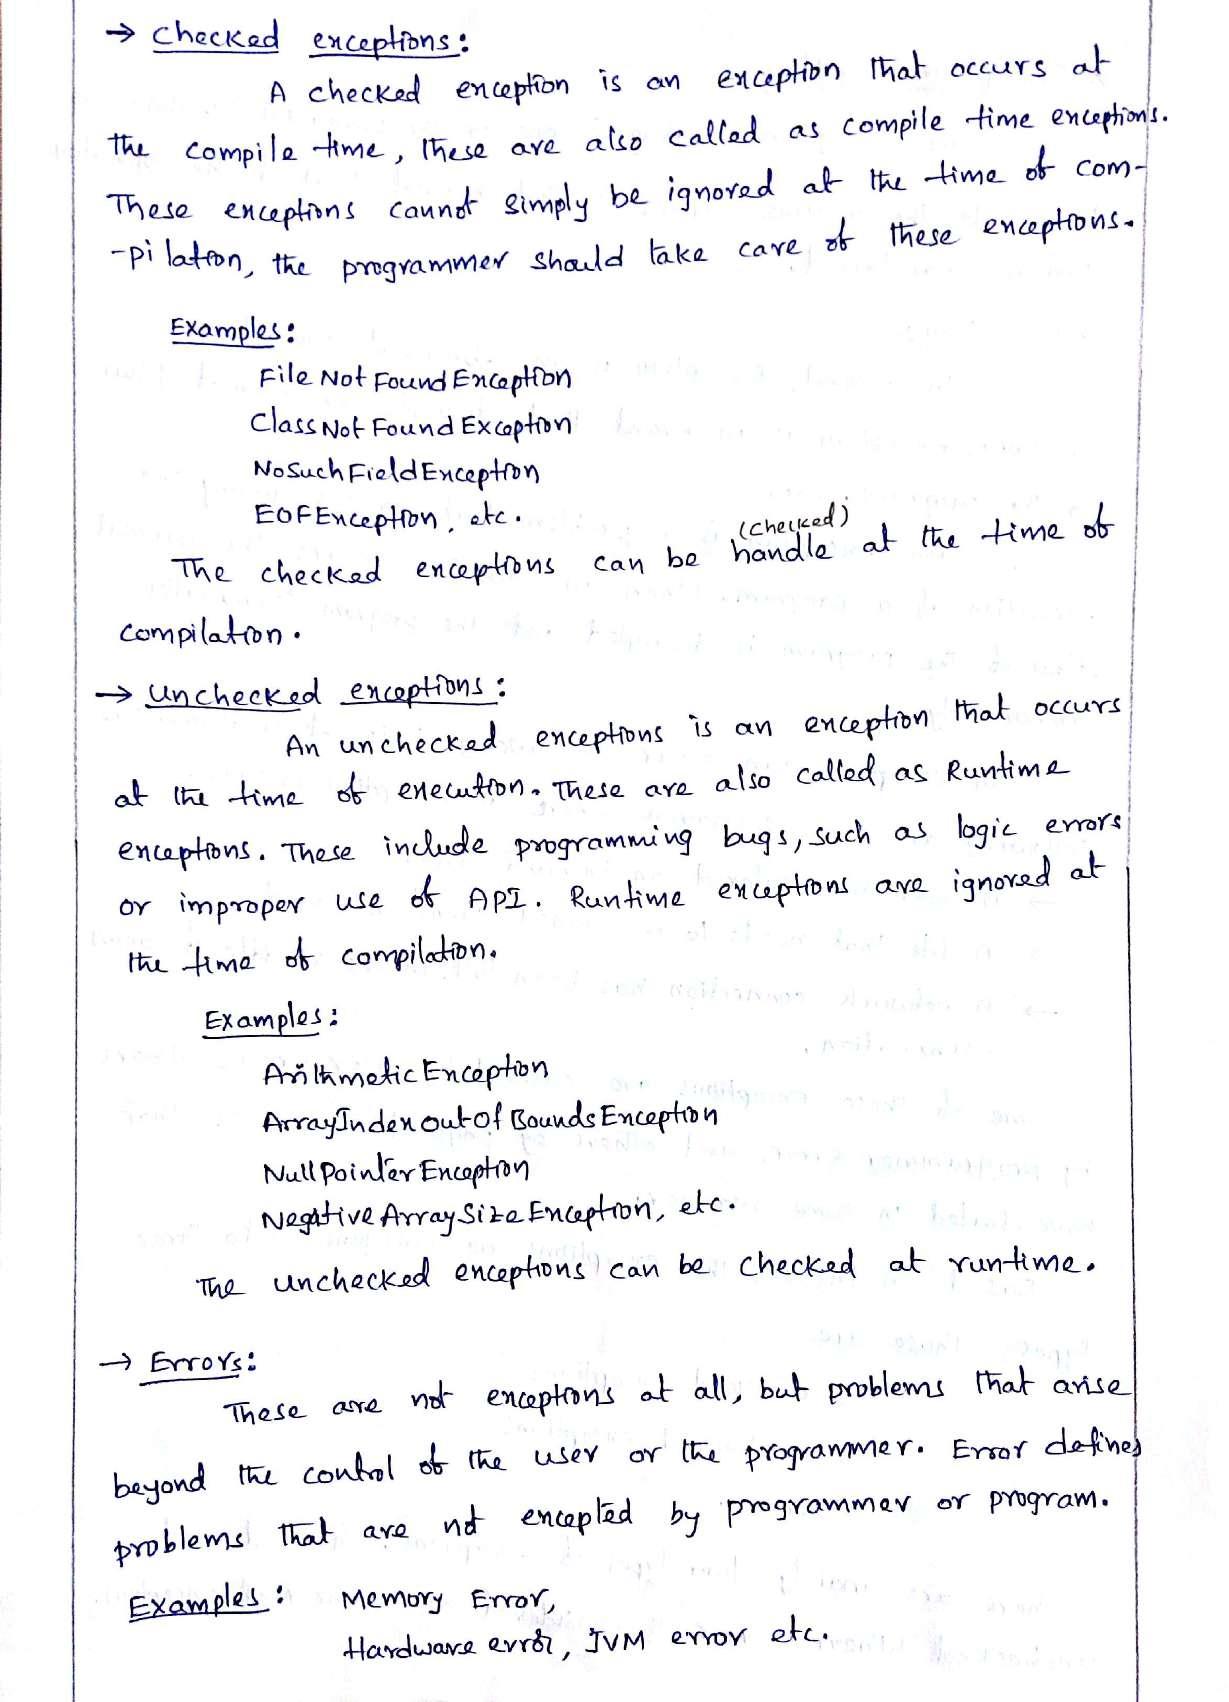 → Checked exceptions:
A checked exception is an exception that occurs at
the compile time, these are also called as compile time exceptions.
These exceptions cannot simply be ignored at the time of com-
-pilation, the programmer should take care of these exceptions.
Examples:
File Not Found Exception
Class Not Found Exception
NoSuchFieldException
EOFException, etc.
(checked)
The checked exceptions can be handle at the time of
compilation.
→ Unchecked exceptions:
An unchecked exceptions is an exception that occurs
at the time of execution. These are also called as Runtime
exceptions. These include programming bugs, such as logic errors
or improper use of API. Runtime exceptions are ignored at
the time of compilation.
Examples:
Arithmetic Exception
ArrayIndex out of Bounds Exception
Null Pointer Exception
Negative Array Size Exception, etc.
The unchecked exceptions can be checked at run-time.
→ Errors:
These are not exceptions at all, but problems that arise
beyond the control of the user or the programmer. Error defines
problems that are not excepted by programmer or program.
Examples: Memory Error,
Hardware error, JVM error etc.